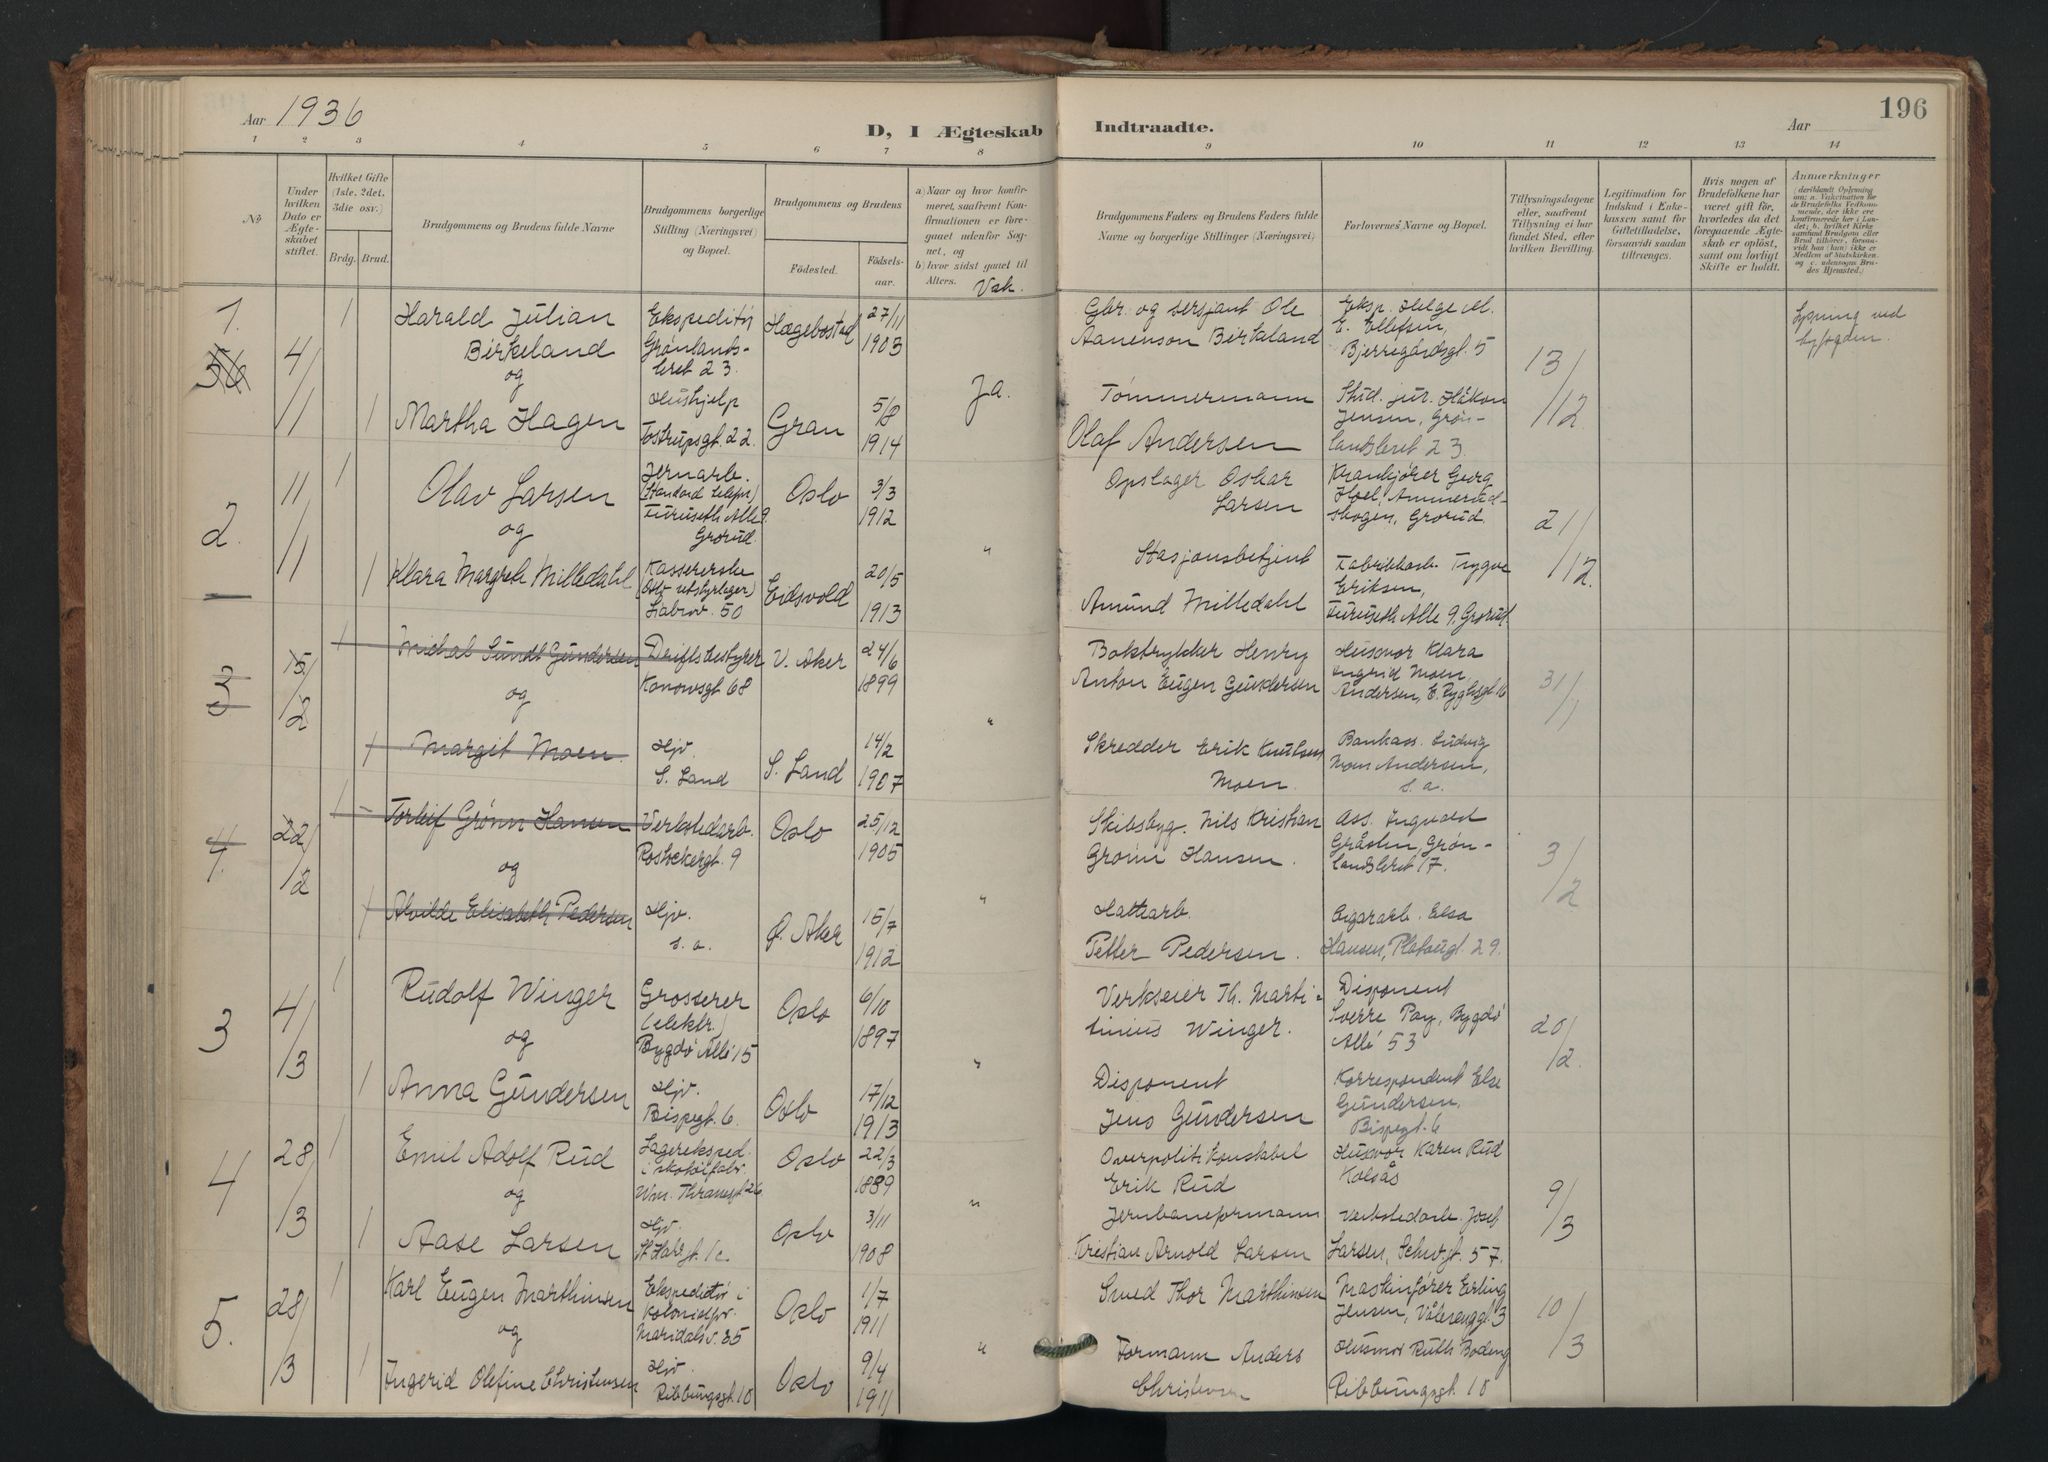 Aar 1936
D, I Ægteskab Indtraadte.
Aar
196
1 2 3 4 5 6 7 8 9 10 11 12 13 14
No
Under hvilken Dato er Ægteskabet stiftet.
Hvilket Gifte (1ste, 2det, 3die osv.)
Brdg. Brud.
Brudgommens og Brudens fulde Navne
Brudgommens borgerlige Stilling (Næringsvei) og Bopæl.
Brudgommens og Brudens
Födested.
Födsels-aar.
a) Naar og hvor konfirmeret, saafremt Konfirmationen er foregaaet udenfor Sognet, og
b) hvor sidst gaaet til Alters.
Vak.
Brudgommens Faders og Brudens Faders fulde Navne og borgerlige Stillinger (Næringsvei)
Forlovernes Navne og Bopæl.
Tillysningsdagene eller, saafremt Tillysning ei har fundet Sted, efter hvilken Bevilling.
Legitimation for Indskud i Enkekassen samt for Giftetilladelse, forsaavidt saadan tiltrænges.
Hvis nogen af Brudefolkene har været gift för, hvorledes da det foregaaende Ægteskab er oplöst, samt om lovligt Skifte er holdt.
Anmærkninger
1.
56
4/1
1
Harald Julian
Birkeland
og
1
Martha Hagen
Ekspeditör
Grønlands-
leret 23.
Hushjelp
Tostrupsgt. 22.
Hægebostad
Gran
27/11
1903
5/8
1914
Ja.
Gbr. og sersjant Ole
Aanenson Birkeland
Tømmermann
Olaf Andersen
Eksp. Helge M.
E. Ellefsen,
Bjerregårdsgt. 5
Stud. jur. Håkon
Jensen, Grøn-
landsleret 23.
13/12
Lysning ved
byfogden.
2.
11/1
1
Olav Larsen
og
1
Klara Margrete Milledahl.
Jernarb.
Furuseth Alle 9.
Grorud.
Kassererske
Labrov. 50
Oslo
Eidsvold
3/3
1912
20/5
1913
"
Opslager Oskar
Larsen
Stasjonsbetjent
Amund Milledahl
Krankjører Georg
Hoel, Ammerud-
skogen, Grorud.
Fabrikkarb. Trygve
Eriksen,
Furuseth Alle 9. Grorud.
21/12.
3
15/2
1
Michal Sundt Gundersen
og
1
Margit Moen.
Driftsbestyrer
Konowsgt 68
Hjv.
S. Land
V. Aker
S. Land
24/6
1899
14/2
1907
"
Boktrykker Henry
Anton Eugen Gundersen
Skredder Erik Knutsen
Moen.
Husmor Klara
Ingrid Moen
Andersen,
Bankass. Ludvig
Moen Andersen,
s. a.
31/1
4.
22/2
1
Torleif Grønn Hansen
og
1
Alvilde Elisabeth Pedersen
Verkstedarb.
Rostockergt. 9
Hjv.
s. a.
Oslo
Ø. Aker
25/12
1905
15/7
1912
"
Skibsbyg. Nils Kristian
Grønn Hansen.
Hattarb.
Petter Pedersen.
Ass. Ingvald
Gråsten, Grøn-
landsleret 17.
Cigararb. Elsa
Hansen, Platougt. 29.
3/2
3
4/3
1
Rudolf Winger
og
1
Anna Gundersen
Grosserer
(elektr.)
Bygdö Allé 15
Hjv.
Bispegt. 6.
Oslo
Oslo
6/10
1897
17/12
1913
"
Verkseier Th. Marti-
tinius Winger.
Disponent
Jens Gundersen
Disponent
Sverre Pay, Bygdö
Allé 53
Korrespondent Else
Gundersen,
Bispegt. 6
20/2.
4
28/3
1
Emil Adolf Rud
og
1
Aase Larsen
Lagereksped.
i skotöifabr.
Wm. Thranesgt 26
Hjv.
St. Halvgt. 1c.
Oslo
Oslo
22/3
1889
3/11
1908
"
Overpolitikonstabel
Erik Rud
Jernbaneformann
Kristian Arnold Larsen
Husmor Karen Rud
Kolsås
Verkstedarb. Josef
Larsen, Schwgt. 57.
9/3
5.
28/3
1
Karl Eugen Marthinsen
og
1
Ingerid Olefine Christensen
Ekspeditör i
Kolonialfor.
Maridalsv. 35
Hjv
Ribbungsgt. 10
Oslo
Oslo
1/7
1911
9/4
1911
"
Smed Thor Marthinsen
Formann Anders
Christensen
Maskinfører Erling
Jensen, Vålerenggt. 3
Husmor Ruth Bodeng
Ribbungsgt. 10
10/3